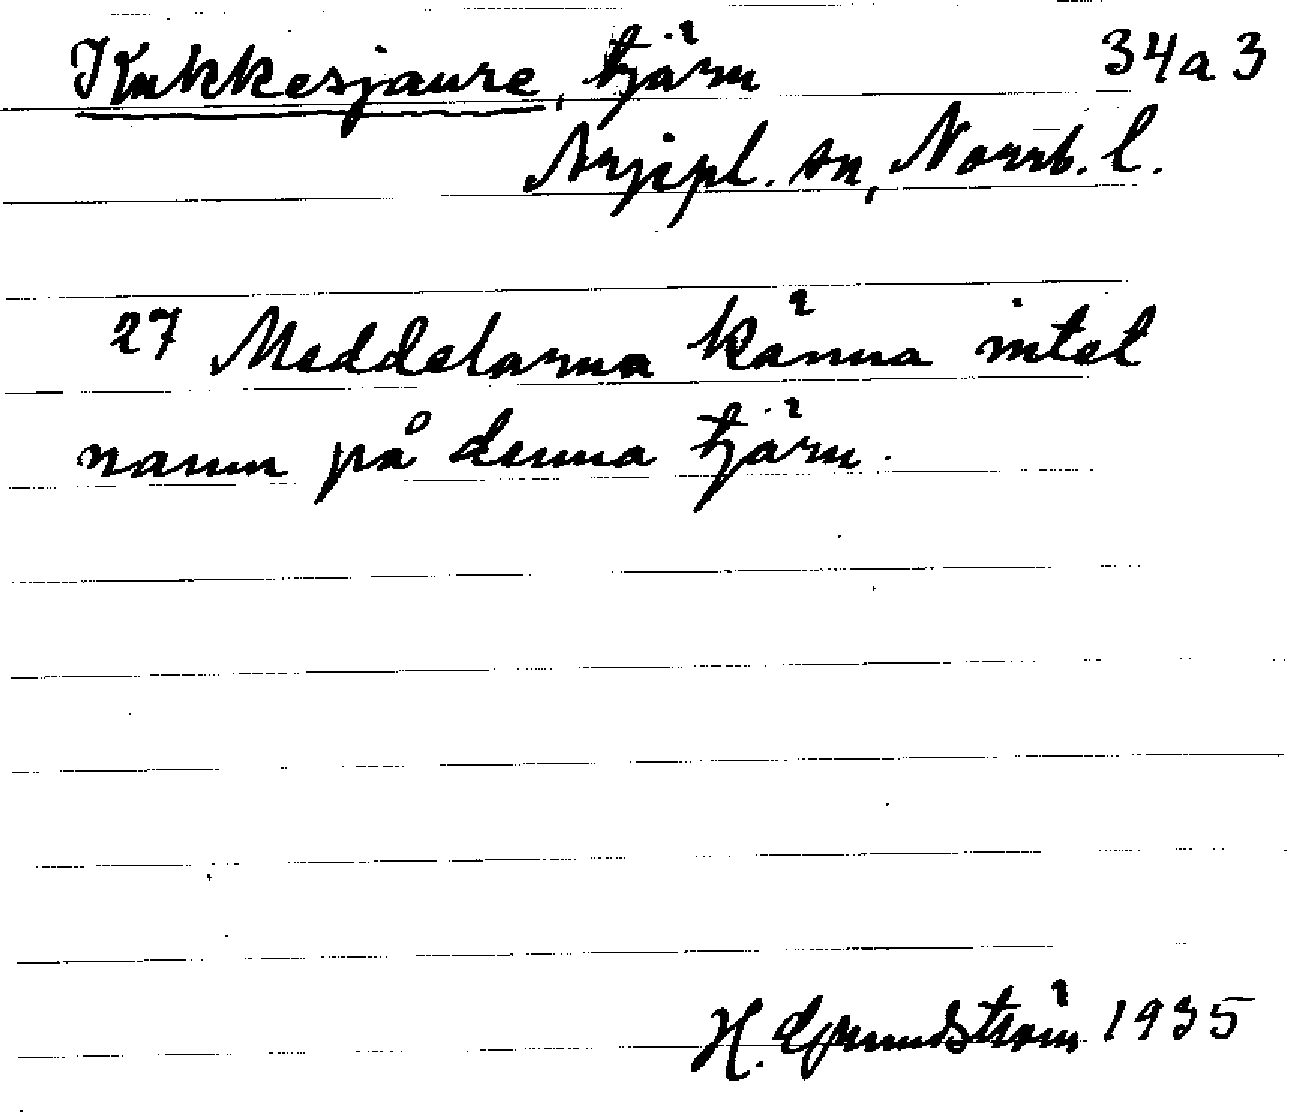 Kukkesjaure, tjärn 34a3
Arjepl. sn, Norrb. l.
27 Meddelarna känna intet
namn på denna tjärn.
H. Grundström 1935